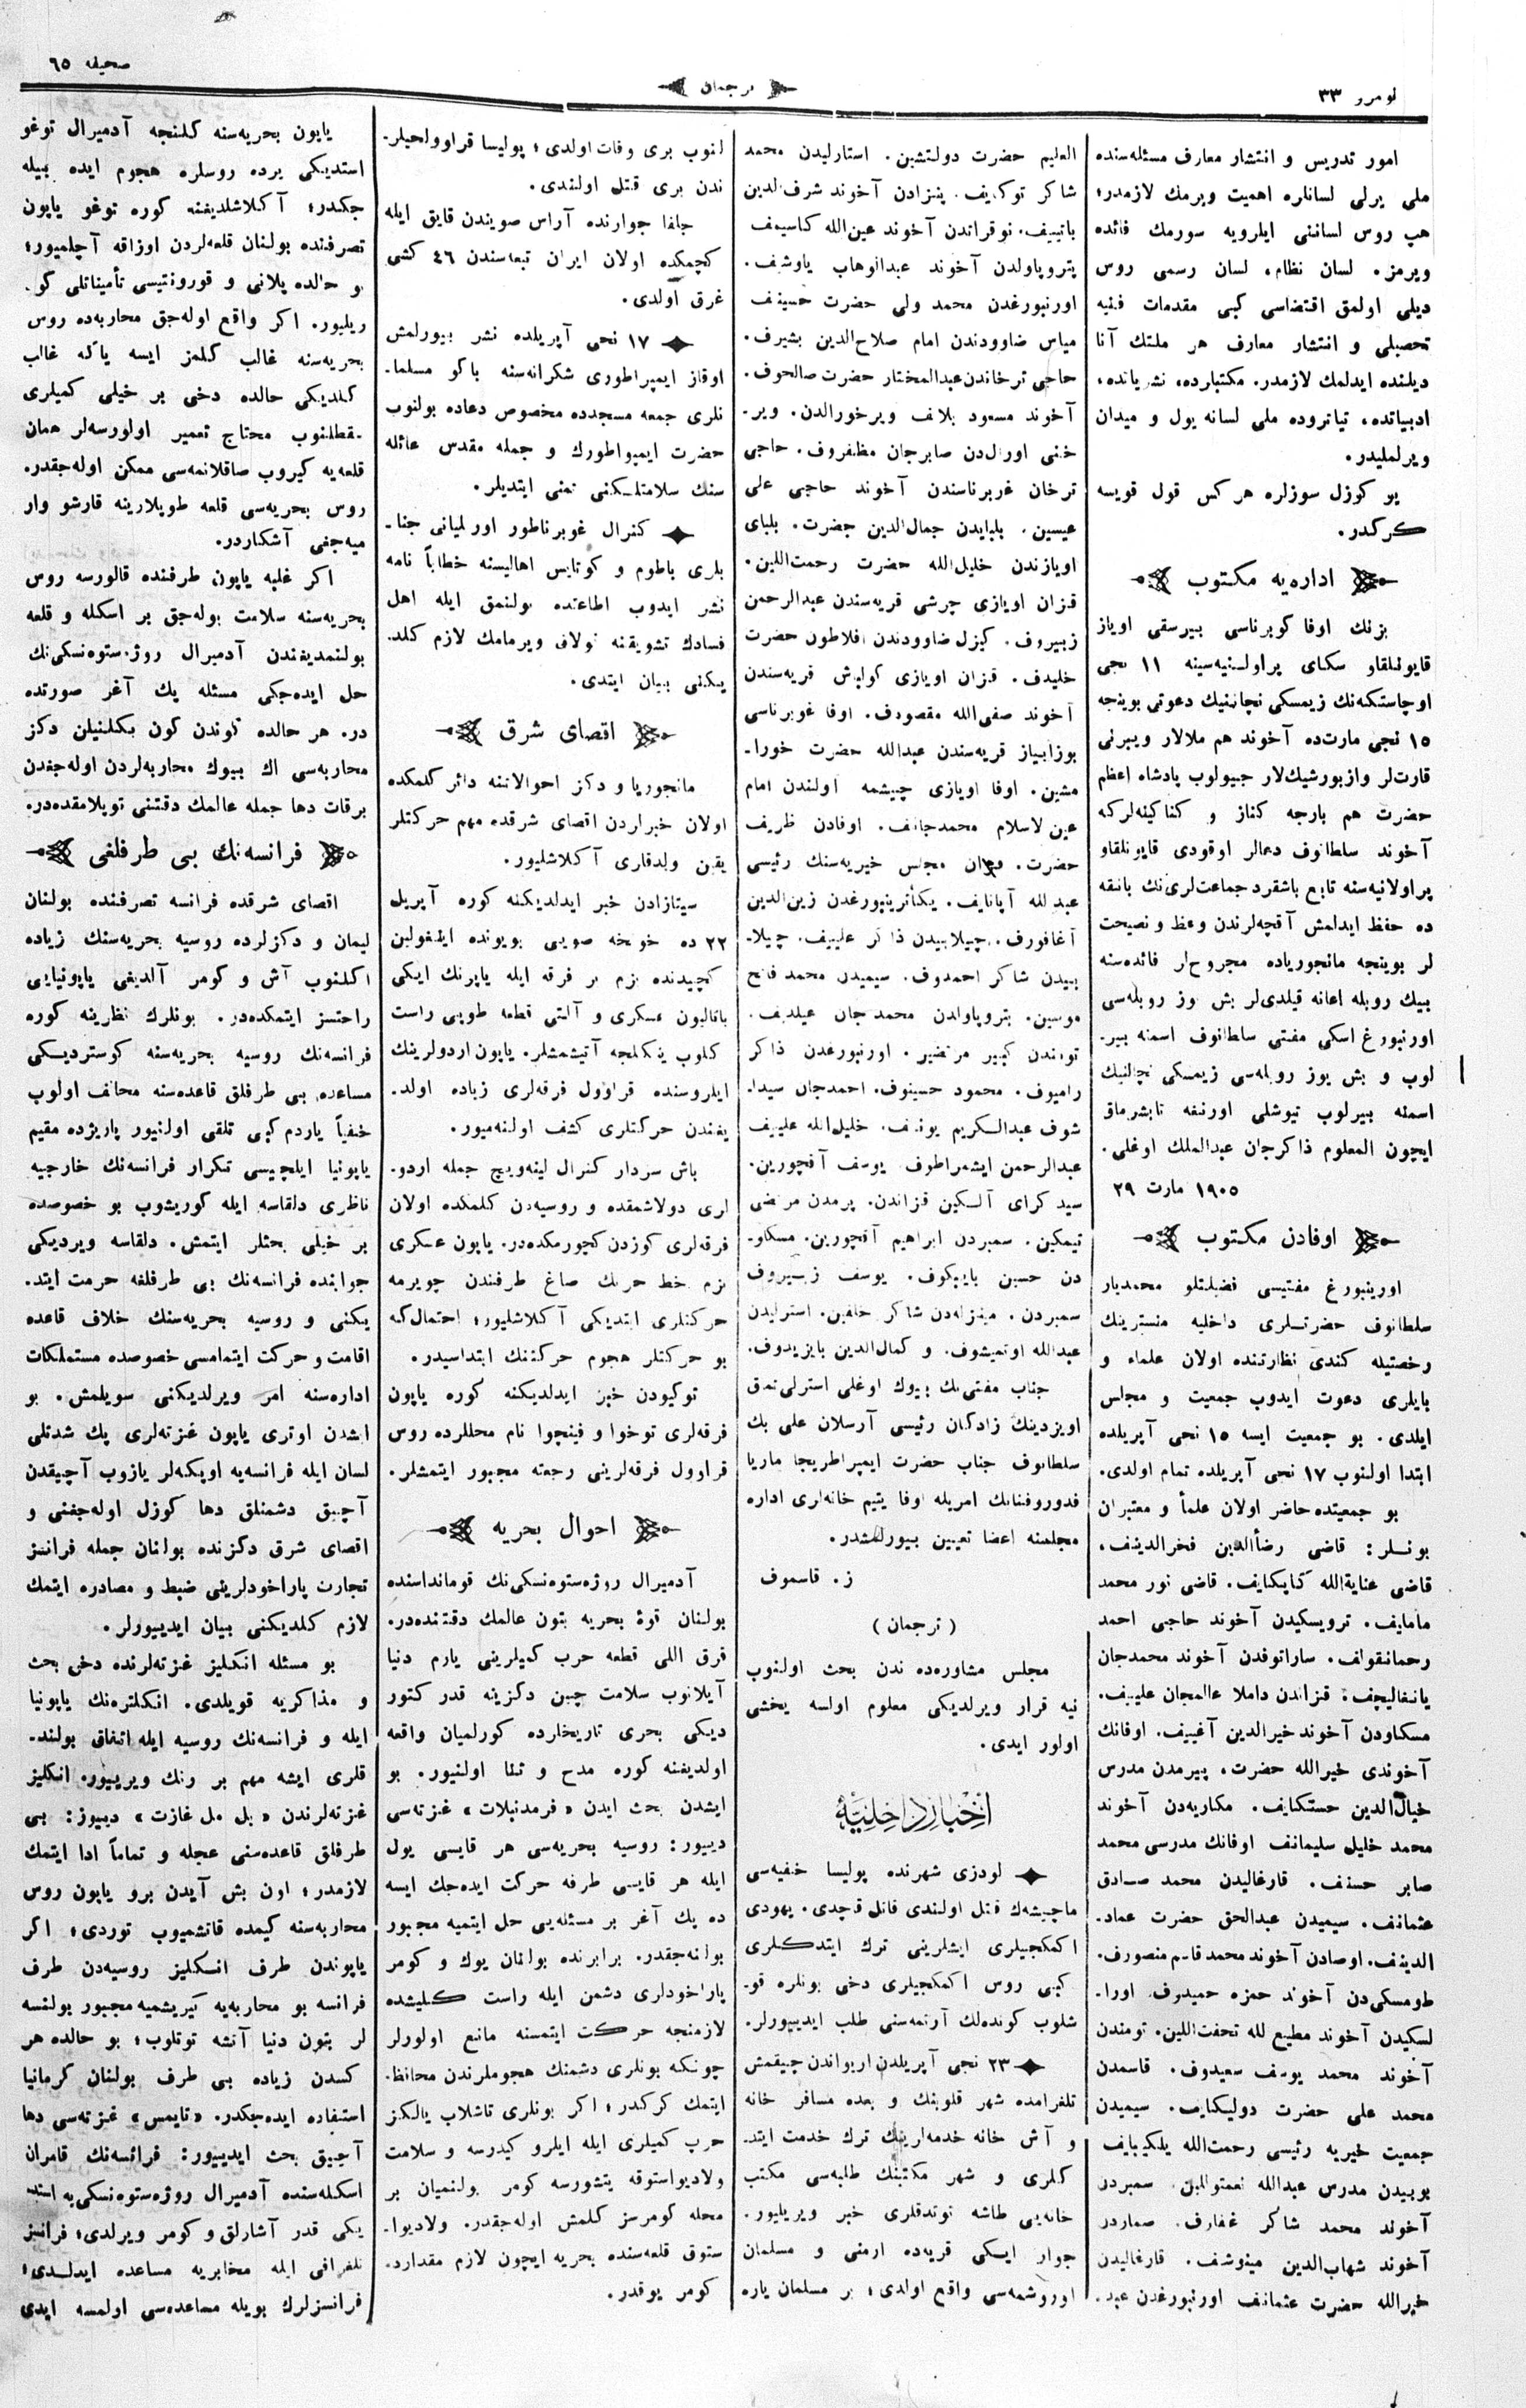 نومرو ٣٣
ترجمان
صحيفه ٦٥
امور تدريس و انتشار معارف مسئله‌سنده
ملی يرلی لسانلره اهميت ويرمك لازمدر؛
هپ روس لساننی ايلرويه سورمك فائده
ويرمز. لسان نظام، لسان رسمی روس
ديلی اولمق اقتضاسی كبی مقدمات فنيه
تحصيلی و انتشار معارف هر ملتك آنا
ديلنده ايدلمك لازمدر. مكتبلرده، نشرياتده،
ادبياتده، تياتروده ملی لسانه يول و ميدان
ويرلمليدر.
بو كوزل سوزلره هر كس قول قويسه
كركدر.
اداره‌يه مكتوب
بزنك اوفا كوبرناسی بيرسقی اوياز
قايونلقاو سكای پراولسنيه‌سينه ١١ نجی
اوچاستكه‌نك زيمسكی نچالنيك دعوتی بوينچه
١٥ نجی مارت‌ده آخوند هم ملالار ويبرنی
قارت‌لر وازبورشيك‌لار جييولوب پادشاه اعظم
حضرت هم بارجه كناز و كناكينه‌لركه
آخوند سلطانوف دعالر اوقودی قايونلقاو
پراولانيه‌سنه تابع باشقرد جماعت‌لری‌نك بانقه
ده حفظ ايدلمش آقچه‌لرندن وعظ و نصيحت
لر بوينجه مانجورياده مجروح‌لر فائده‌سنه
بيك روبله اعانه قيلدی‌لر بش يوز روبله‌سی
اورنبورغ اسكی مفتی سلطانوف اسمنه بير-
لوب و بش يوز روبله‌سی زيمسكی نچالنيك
اسمنه بيرلوب تيوشلی اورنغه تابشرماق
ايچون المعلوم ذاكرجان عبدالملك اوغلی.
١٩٠٥ مارت ٢٩
اوفادن مكتوب
اورينبورغ مفتيسی فضيلتلو محمديار
سلطانوف حضرتلری داخليه منسترينك
رخصتيله كندی نظارتنده اولان علماء و
بايلری دعوت ايدوب جمعيت و مجلس
ايلدی. بو جمعيت ايسه ١٥ نجی آپريلده
ابتدا اولنوب ١٧ نجی آپريلده تمام اولدی.
بو جمعيتده حاضر اولان علمأ و معتبران
بونلر: قاضی رضأالدين فخرالدينف،
قاضی عناية‌الله كاپكايف. قاضی نور محمد
مامايف. ترويسكيدن آخوند حاجی احمد
رحمانقولف. ساراتوفدن آخوند محمدجان
يانغاليچف. قزاندن داملا عالمجان عليیف.
مسكاودن آخوند خيرالدين آغييف. اوفانك
آخوندی خيرالله حضرت، پيرمدن مدرس
خيال‌الدين حستكايف. مكاريه‌دن آخوند
محمد خليل سليمانف اوفانك مدرسی محمد
صابر حسنف. قارغاليدن محمد صادق
عثمانف. سيميدن عبدالحق حضرت عماد-
الدينف. اوصادن آخوند محمد قاسم منصورف.
طومسكی‌دن آخوند حمزه حميدوف. اورا-
لسكيدن آخوند مطيع لله تحفت‌اللين. تومندن
آخوند محمد يوسف سعيدوف. قاسمدن
محمد علی حضرت دوليكايف. سيميدن
جمعيت خيريه رئيسی رحمت‌الله يلكيبايف
بوبيدن مدرس عبدالله نعمتوللين. سمبردن
آخوند محمد شاكر غفارف. صماردن
آخوند شهاب‌الدين مينوشف. قارغاليدن
خيرالله حضرت عثمانف اورنبورغدن عبد-
العليم حضرت دولتشين. استارليدن محمد
شاكر توكايف. پنزادن آخوند شرف‌الدين
باتييف. نوقراتدن آخوند عين‌الله كاسيمف
پتروپاولدن آخوند عبدالوهاب ياوشف.
اورنبورغدن محمد ولی حضرت حسينف
مياس ضاوودندن امام صلاح‌الدين بشيرف.
حاجی ترخاندن عبدالمختار حضرت صالحوف.
آخوند مسعود بلانف ويرخورالدن. وير-
خنی اورال‌دن صابرجان مظفروف. حاجی
ترخان غوبرناسندن آخوند حاجی علی
عيسين. بلبايدن جمال‌الدين حضرت. بلبای
اويازندن خليل‌الله حضرت رحمت‌اللين.
قزان اويازی چرشی قريه‌سندن عبدالرحمن
زبيروف. كيزل ضاوودندن افلاطون حضرت
خليدف. قزان اويازی كولبش قريه‌سندن
آخوند صفی‌الله مقصودف. اوفا غوبرناسی
بوزابياز قريه‌سندن عبدالله حضرت خورا-
مشين. اوفا اويازی چيشمه اولندن امام
عين لاسلام محمدجانف. اوفادن ظريف
حضرت. مجلس خيريه‌سنك رئيسی
عبدالله آپانايف. يكاترينبورغدن زين‌الدين
آغافورف. چيلابيدن ذاكر عليیف. چيلا-
بييدن شاكر احمدوف. سيميدن محمد فاتح
موسين. پتروپاولدن محمد جان عبيديف.
تومندن كبير مرتضين. اورنبورغدن ذاكر
راميوف. محمود حسينوف. احمدجان سيدا-
شوف عبدالكريم يونف. خليل‌الله عليیف
عبدالرحمن ايشمراطوف يوسف آقچورين.
سيد كرای آلكين قزاندن. پرمدن مرتضی
تيمكين. سمبردن ابراهيم آقچورين. مسكاو-
دن حسين بايبكوف. يوسف زبيروف
سمبردن. مينزله‌دن شاكر خلفين. استرليدن
عبدالله اوتميشوف. و كمال‌الدين بايزيدوف.
جناب مفتی‌نك بيوك اوغلی استرلی‌تمق
اويزدينك زادكان رئيسی آرسلان علی بك
سلطانوف جناب حضرت ايمپراطريجا ماريا
فدوروفنانك امريله اوفا يتيم خانه‌لری اداره
مجلسنه اعضا تعيين بيورلمشدر.
ز. قاسموف
(ترجمان)
مجلس مشاوره‌ده ندن بحث اولنوب
نيه قرار ويرلديكی معلوم اولسه يخشی
اولور ايدی.
اخبار داخليه
لودزی شهرنده پوليسا خفيه‌سی
ماچيشه‌ك قتل اولندی قاتل قاچدی. يهودی
اكمكجيلری ايشلرينی ترك ايتدكلری
كبی روس اكمكجيلری دخی بونلره قو-
شلوب كونده‌لك آرتمه‌سنی طلب ايدييورلر.
٢٣ نجی آپريلدن اريواندن چيقمش
تلغرامده شهر قلوبنك و بعده مسافر خانه
و آش خانه خدمه‌لرينك ترك خدمت ايتد-
كلری و شهر مكتبنك طلبه‌سی مكتب
خانه‌يی طاشه توتدقلری خبر ويريليور.
جوار ايكی قريه‌ده ارمنی و مسلمان
اوروشمه‌سی واقع اولدی؛ بر مسلمان ياره
لنوب بری وفات اولدی؛ پوليسا قراوولجيلر-
ندن بری قتل اولندی.
جلفا جوارنده آراس صويندن قايق ايله
كچمكده اولان ايران تبعه‌سندن ٤٦ كشی
غرق اولدی.
١٧ نجی آپريلده نشر بيورلمش
اوقاز ايمپراطوری شكرانه‌سنه باكو مسلما-
نلری جمعه مسجدده مخصوص دعاده بولنوب
حضرت ايمپراطورك و جمله مقدس عائله
سنك سلامتلكنی تمنی ايتديلر.
كنرال غوبرناطور اورلميانی جنا-
بلری باطوم و كوتايس اهاليسنه خطاباً نامه
نشر ايدوب اطاعتده بولنمق ايله اهل
فسادك تشويقنه قولاق ويرمامك لازم كلد-
يكنی بيان ايتدی.
اقصای شرق
مانجوريا و دكز احوالاتنه دائر كلمكده
اولان خبرلردن اقصای شرقده مهم حركتلر
يقين ولدقلری آكلاشليور.
سيتازادن خبر ايدلديكنه كوره آپريل
٢٢ ده خونخه صويی بويونده ايلغولين
كچيدنده بزم بر فرقه ايله ياپونك ايكی
باتاليون عسكری و آلتی قطعه طوپی راست
كلوب ينكلجه آتيشمشلر. ياپون اردولرينك
ايلروسنده قراوول فرقه‌لری زياده اولد-
يغندن حركتلری كشف اولنه‌ميور.
باش سردار كنرال لينه‌ويچ جمله اردو-
لری دولاشمقده و روسيه‌دن كلمكده اولان
فرقه‌لری كوزدن كچورمكده‌در. ياپون عسكری
بزم خط حربك صاغ طرفندن چويرمه
حركتلری ايتديكی آكلاشليور؛ احتمال‌كه
بو حركتلر هجوم حركتنك ابتداسيدر.
توكيودن خبر ايدلديكنه كوره ياپون
فرقه‌لری توخوا و فينچوا نام محللرده روس
قراوول فرقه‌لرينی رجعته مجبور ايتمشلر.
احوال بحريه
آدميرال روژه‌ستوه‌نسكی‌نك قومانداسنده
بولنان قوۀ بحريه بتون عالمك دقتنده‌در.
قرق اللی قطعه حرب كميلرينی يارم دنيا
آيلانوب سلامت چين دكزينه قدر كتور
ديكی بحری تاريخلرده كورلميان واقعه
اولديغنه كوره مدح و ثنا اولنيور. بو
ايشدن بحث ايدن «فرمدنبلات» غزته‌سی
دييور: روسيه بحريه‌سی هر قايسی يول
ايله هر قايسی طرفه حركت ايده‌جك ايسه
ده پك آغر بر مسئله‌يی حل ايتميه مجبور
بولنه‌جقدر. برابرنده بولنان يوك و كومر
پاراخودلری دشمن ايله راست كليشده
لازمنجه حركت ايتمسنه مانع اولورلر
چونكه بونلری دشمنك هجوملرندن محافظه
ايتمك كركدر؛ اكر بونلری تاشلاب يالكز
حرب كميلری ايله ايلرو كيدرسه و سلامت
ولاديواستوقه يتشورسه كومر بولنميان بر
محله كومرسز كلمش اوله‌جقدر. ولاديوا-
ستوق قلعه‌سنده بحريه ايچون لازم مقدارد-
كومر يوقدر.
ياپون بحريه‌سنه كلنجه آدميرال توغو
استديكی يرده روسلره هجوم ايده بيله
جكدر؛ آكلاشلديغنه كوره توغو ياپون
تصرفنده بولنان قلعه‌لردن اوزاقه آچلميور؛
بو حالده پلانی و قورونتيسی تأميناتلی كو-
ريليور. اكر واقع اوله‌جق محاربه‌ده روس
بحريه‌سنه غالب كلمز ايسه ياكه غالب
كلديكی حالده دخی بر خيلی كميلری
سقطلنوب محتاج تعمير اولورسه‌لر همان
قلعه‌يه كيروب صاقلانمه‌سی ممكن اوله‌جقدر.
روس بحريه‌سی قلعه طوپلارينه قارشو وار
ميه‌جغی آشكاردر.
اكر غلبه ياپون طرفنده قالورسه روس
بحريه‌سنه سلامت بوله‌جق بر اسكله و قلعه
بولنمديغندن آدميرال روژه‌ستوه‌نسكی‌نك
حل ايده‌جكی مسئله پك آغر صورتده
در. هر حالده كوندن كون بكلنيلن دكز
محاربه‌سی اك بيوك محاربه‌لردن اوله‌جغندن
برقات دها جمله عالمك دقتنی توپلامقده‌در.
فرانسه‌نك بی طرفلغی
اقصای شرقده فرانسه تصرفنده بولنان
ليمان و دكزلرده روسيه بحريه‌سنك زياده
اكلنوب آش و كومر آلديغی ياپونيايی
راحتسز ايتمكده‌در. بونلرك نظرينه كوره
فرانسه‌نك روسيه بحريه‌سنه كوسترديكی
مساعده بی طرفلق قاعده‌سنه مخالف اولوب
خفياً ياردم كبی تلقی اولنيور پاريژده مقيم
ياپونيا ايلچيسی تكرار فرانسه‌نك خارجيه
ناظری دلقاسه ايله كوريشوب بو خصوصده
بر خيلی بحثلر ايتمش. دلقاسه ويرديكی
جوابنده فرانسه‌نك بی طرفلغه حرمت ايتد-
يكنی و روسيه بحريه‌سنك خلاف قاعده
اقامت و حركت ايتمامسی خصوصده مستملكات
اداره‌سنه امر ويرلديكنی سويلمش. بو
ايشدن اوتری ياپون غزته‌لری پك شدتلی
لسان ايله فرانسه‌يه اوپكه‌لر يازوب آچيقدن
آچيق دشمنلق دها كوزل اوله‌جغنی و
اقصای شرق دكزنده بولنان جمله فرانسز
تجارت پاراخودلرينی ضبط و مصادره ايتمك
لازم كلديكنی بيان ايدييورلر.
بو مسئله انكليز غزته‌لرنده دخی بحث
و مذاكريه قويلدی. انكلتره‌نك ياپونيا
ايله و فرانسه‌نك روسيه ايله اتفاق بولند-
قلری ايشه مهم بر رنك ويرييور. انكليز
غزته‌لرندن «بل مل غازت» دييور: بی
طرفلق قاعده‌سنی عجله و تماماً ادا ايتمك
لازمدر؛ اون بش آيدن برو ياپون روس
محاربه‌سنه كيمده قاتشميوب توردی؛ اكر
ياپوندن طرف انكليز روسيه‌دن طرف
فرانسه بو محاربه‌يه كيريشميه مجبور بولنسه
لر بتون دنيا آتشه توتلوب؛ بو حالده هر
كسدن زياده بی طرف بولنان كرمانيا
استفاده ايده‌جكدر. «تايمس» غزته‌سی دها
آچيق بحث ايدييور: فرانسه‌نك قامران
اسكله‌سنده آدميرال روژه‌ستوه‌نسكی‌يه استد
يكی قدر آشارلق و كومر ويرلدی؛ فرانسز
تلغرافی ايله مخابريه مساعده ايدلدی؛
فرانسزلرك بويله مساعده‌سی اولمسه ايدی